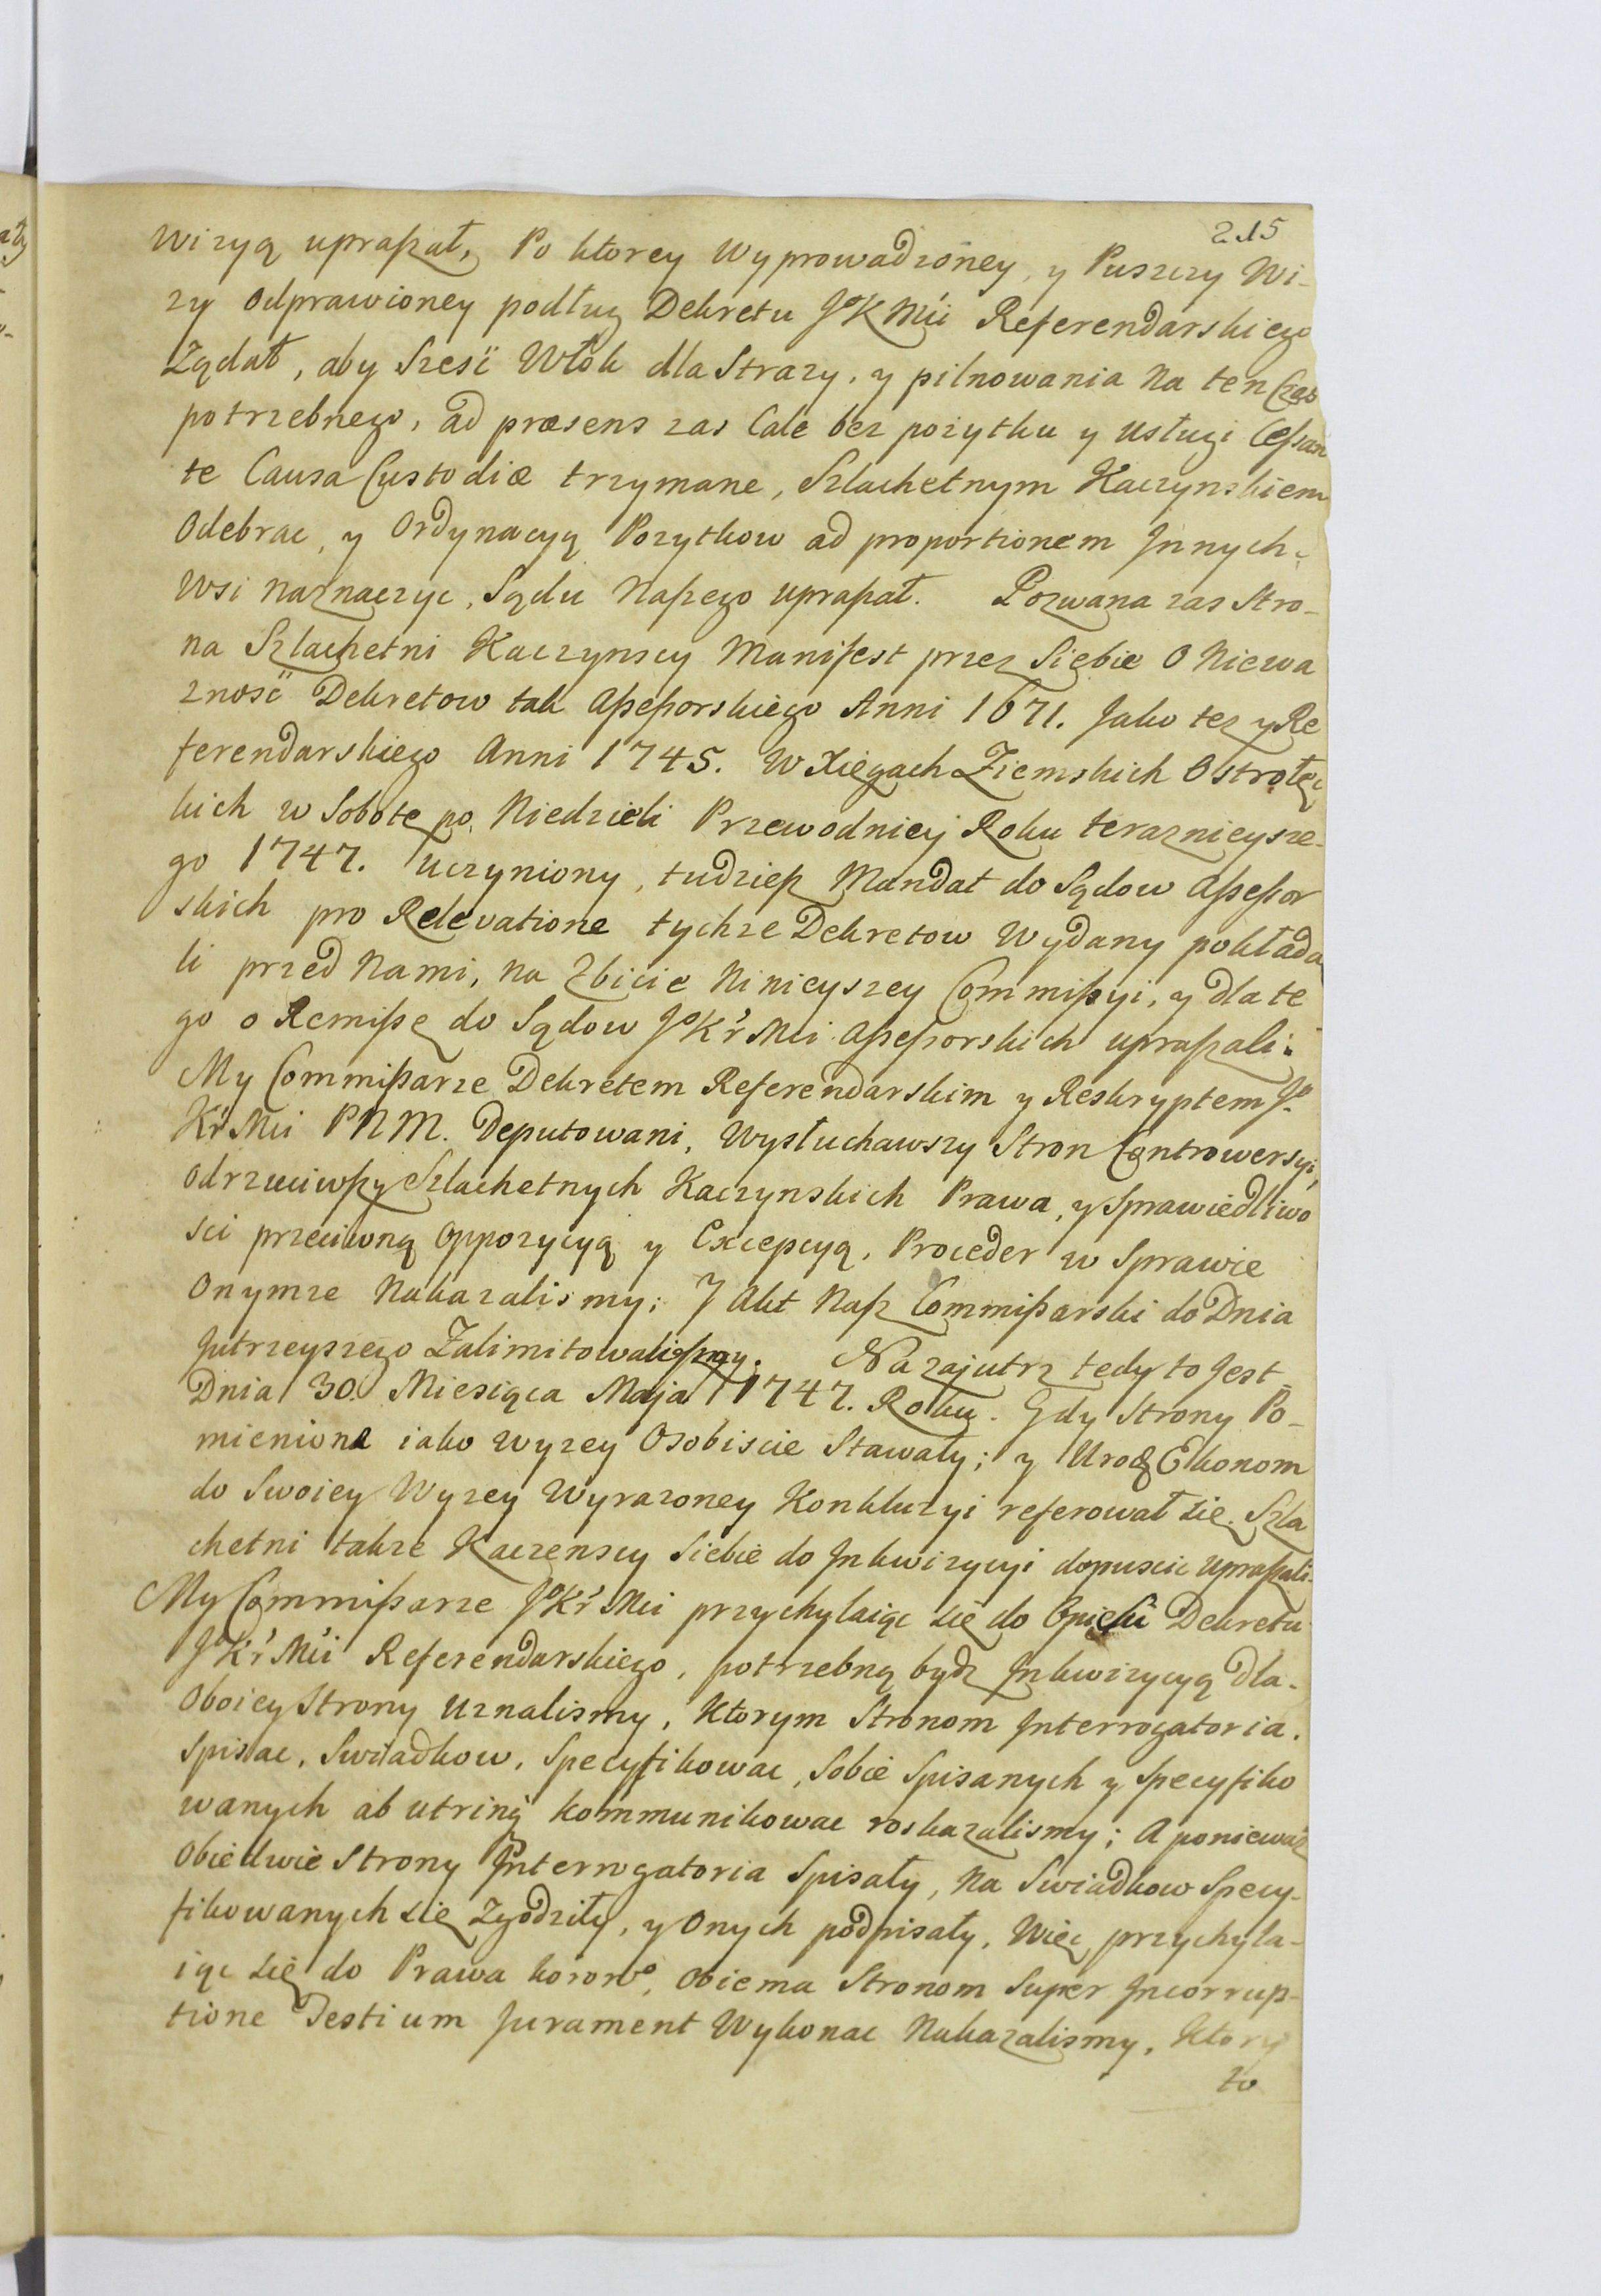 215
wizyą upraszał, Po ktorey Wyprowadzoney, y Puszczy Wi-
zy Odprawioney podług Dekretu JoKMći Referendarskiego
Ządał, aby Szesć Włok dla Strazy, y pilnowania Na ten Czas
potrzebnego, ad præsens zas Cale bez pozytku y Usługi Cessan
te Causa Custodiæ trzymane, Szlachetnym Kaczynskiem
Odebrac, y Ordynacyą Pozytkow ad proportionem Jnnych
Wsi Naznaczyc, Sądu Naszego upraszał. Pozwana zas Stro-
na Szlachetni Kaczynscy Manifest przez Siebie O Niewa
znosć Dekretow tak Assessorskiego Anni 1671. Jako tez y Re
ferendarskiego Anni 1745. W Xięgach Ziemskich Ostrołęc
kich w Sobotę po Niedzieli Przewodniej Roku teraznieysze-
go 1747. Uczyniony, tudziesz Mandat do Sądow Assessor
skich pro Relevatione tychze Dekretow Wydany pokłada
li przed Nami, na Zbicie Ninieyszey Commissyi, y dla te
go o Remissę do Sądow JoKr Mci Assessorskich upraszali:
My Commissarze Dekretem Referendarskim y Reskryptem Jo
Kr Mci PNM. Deputowani, Wysłuchawszy Stron Controwersyi,
odrzuciwszy Szlachetnych Kaczynskich Prawa, y Sprawiedliwo
sci przeciwną Oppozycyą y Excepcyą, Proceder w Sprawie
Onymze Nakazalismy; J Akt Nasz Commissarski do Dnia
Jutrzeyszego Zalimitowalismy. Nazajutrz tedy to Jest
Dnia 30. Miesiąca Maja 1747. Roku. Gdy Strony Po-
mienione iako wyzey Osobiscie Stawały; y Urodz Ekonom
do Swoiey Wyzey Wyrazoney Konkluzyi referował się. Szla
chetni takze Kaczenscy Siebie do Jnkwizycyi dopuscic upraszali.
My Commissarze JoKr Mci przychylaiąc się do Opieki Dekretu
JoKr Mći Referendarskiego, potrzebną bydz Jnkwizycyą dla
Oboiey Strony Uznalismy, Ktorym Stronom Jnterrogatoria.
Spisac, Swiadkow, Specyfikowac, Sobie Spisanych y Specyfiko
wanych ab utrinq kommunikowac roskazalismy; A poniewasz
Obiedwie Strony Jnterrogatoria Spisały, Na Swiadkow Specy-
fikowanych się Zgodziły, y Onych podpisały, Więc przychyla-
iąc się do Prawa korono, Obiema Stronom Super Jncorrup-
tione Testium Jurament Wykonac Nakazalismy, Ktory
to